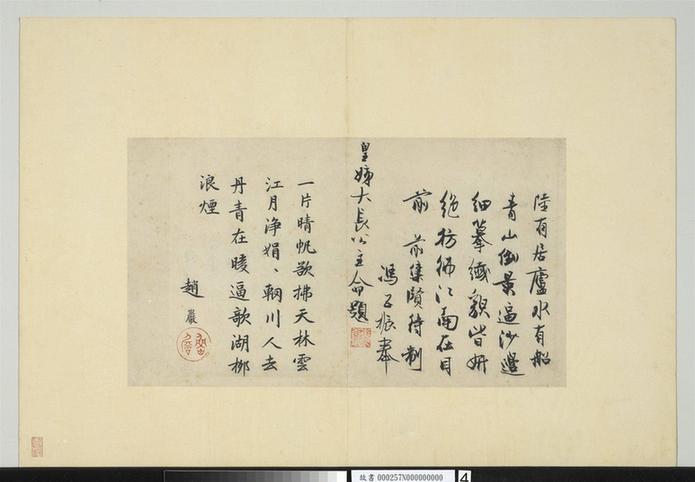 陸有居廬水有船
青山倒景逼沙邊
細摹纖靚皆妍
絕彷彿江南在目
前 前集賢待制
馮子振奉
皇姊大長公主命題
一片晴帆欲拂天林雲
江月淨娟、輞川人去
丹青在暖逼歌湖柳
浪煙
趙巖
故書 000257N000000000 4